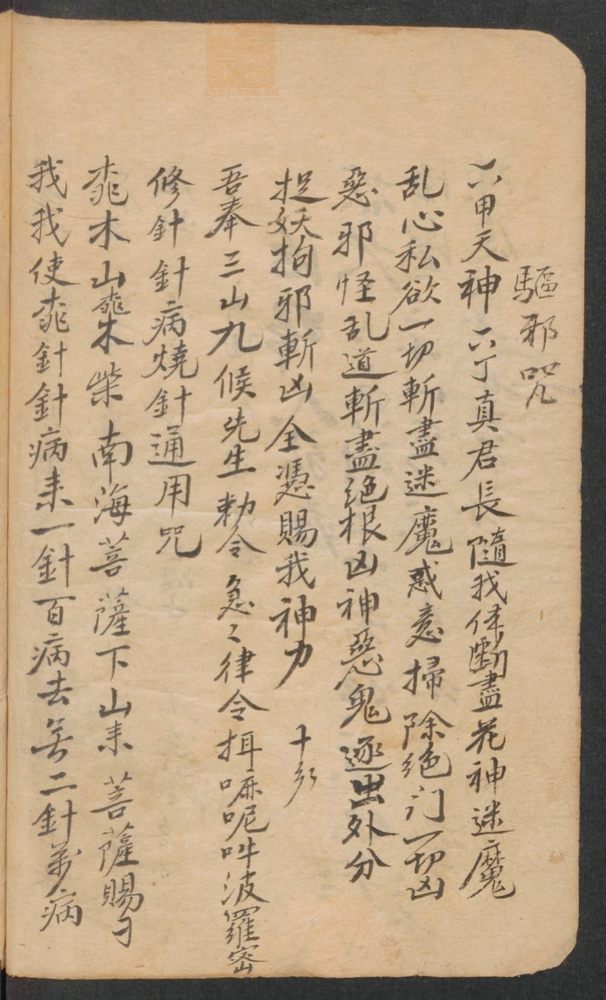 驅邪咒
六甲天神六丁真君長隨我体斷盡花神迷魔
乱心私欲一切斬盡迷魔惑意掃除絶门一切凶
惡邪怪乱道斬盡绝根凶神惡鬼逐出外分
捉妖拘邪斬凶全憑賜我神力
吾奉三山九候先生勅令急々律令揖嘛呢吽波羅密
修針針病燒針通用咒
桃木山桃木柴南海菩薩下山耒菩薩賜
我我使桃針針病耒一針百病去矣二針萬病